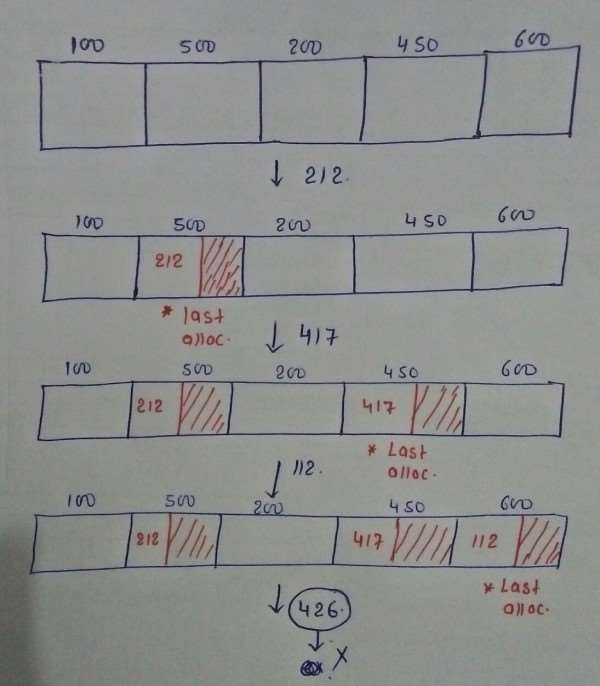 100 500 200 450 600
↓ 212.
100 500 200 450 600
212
* last
alloc.
↓ 417
100 500 200 450 600
212 417
* Last
alloc.
↓ 112.
100 500 200 450 600
212 417 112
* Last
alloc.
↓ 426.
↓
X